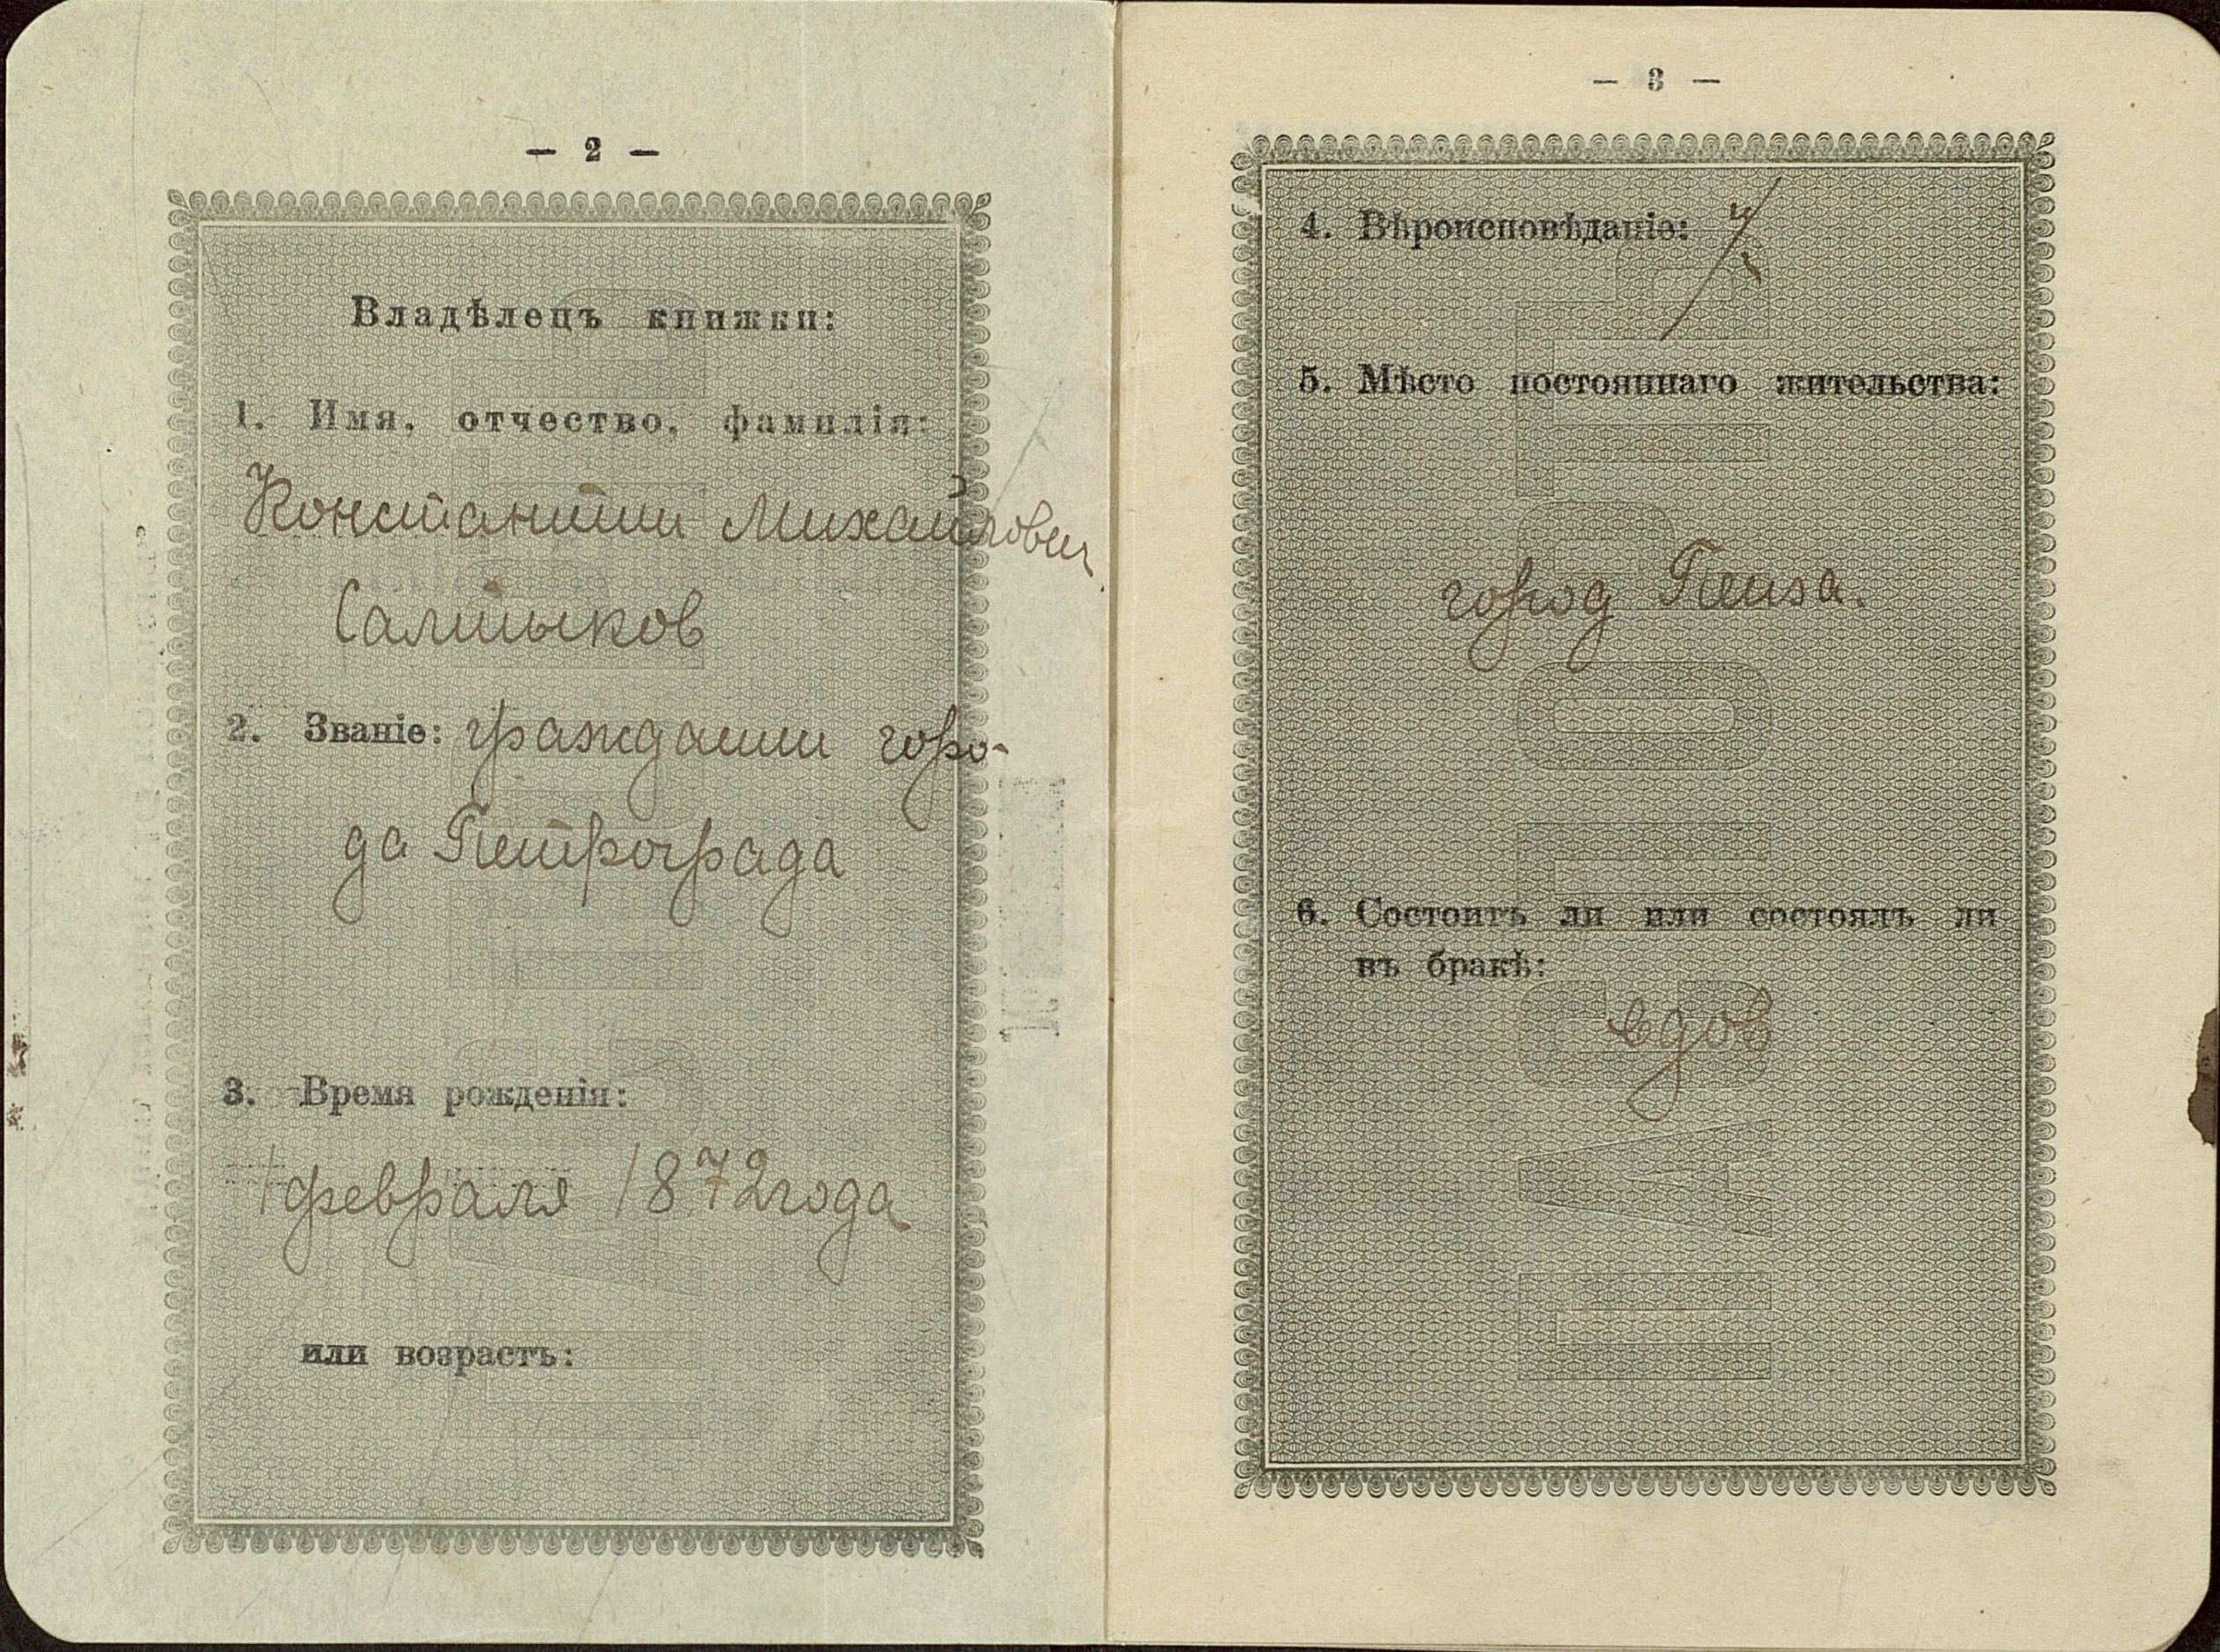 — 2 —
Владѣлецъ книжки:
1. Имя, отчество, фамилія:
Константин Михайлович
Салтыков
2. Званіе: гражданин горо-
да Петрограда
3. Время рожденія:
1 февраля 1872 года
или возрастъ:
— 3 —
4. Вѣроисповѣданіе:
5. Мѣсто постояннаго жительства:
город Пенза.
6. Состоитъ ли или состоялъ ли
въ бракѣ:
вдов
ПАСПОРТЪ